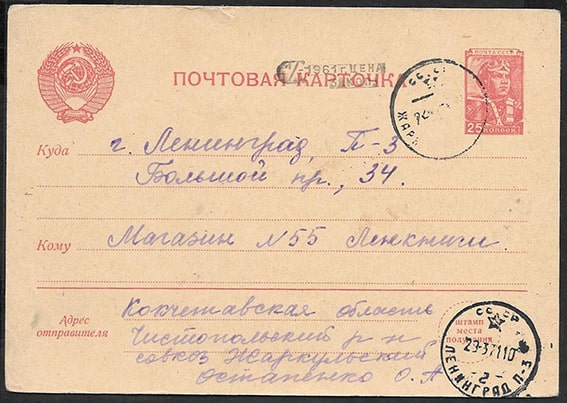 ПОЧТОВАЯ КАРТОЧКА
1961 г. ЦЕНА
ПОЧТА СССР
25 КОПЕЕК
СССР
ЖАРК
Куда г. Ленинград, П-3
Большой пр., 34.
Кому Магазин N 55 Ленкниги
Адрес отправителя
Кокчетавская область
Чистопольский р-н
совхоз Жаркульский
Остапенко О. А
штамп
места
получения
СССР
ЛЕНИНГРАД П-3